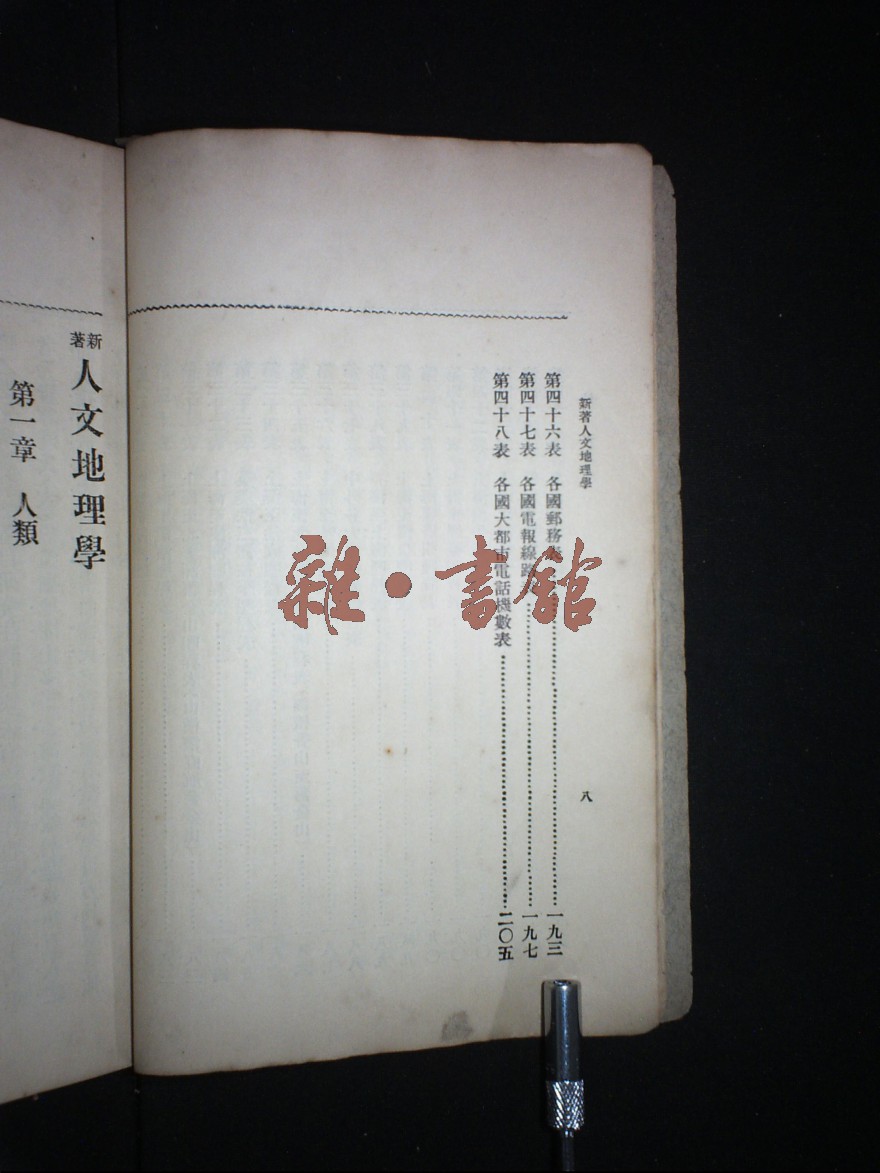 新著人文地理學
八
第四十六表 各國郵務表 一九三
第四十七表 各國電報線路 一九七
第四十八表 各國大都市電話機數表 二〇五
新著
人文地理學
第一章 人類
雜·書館